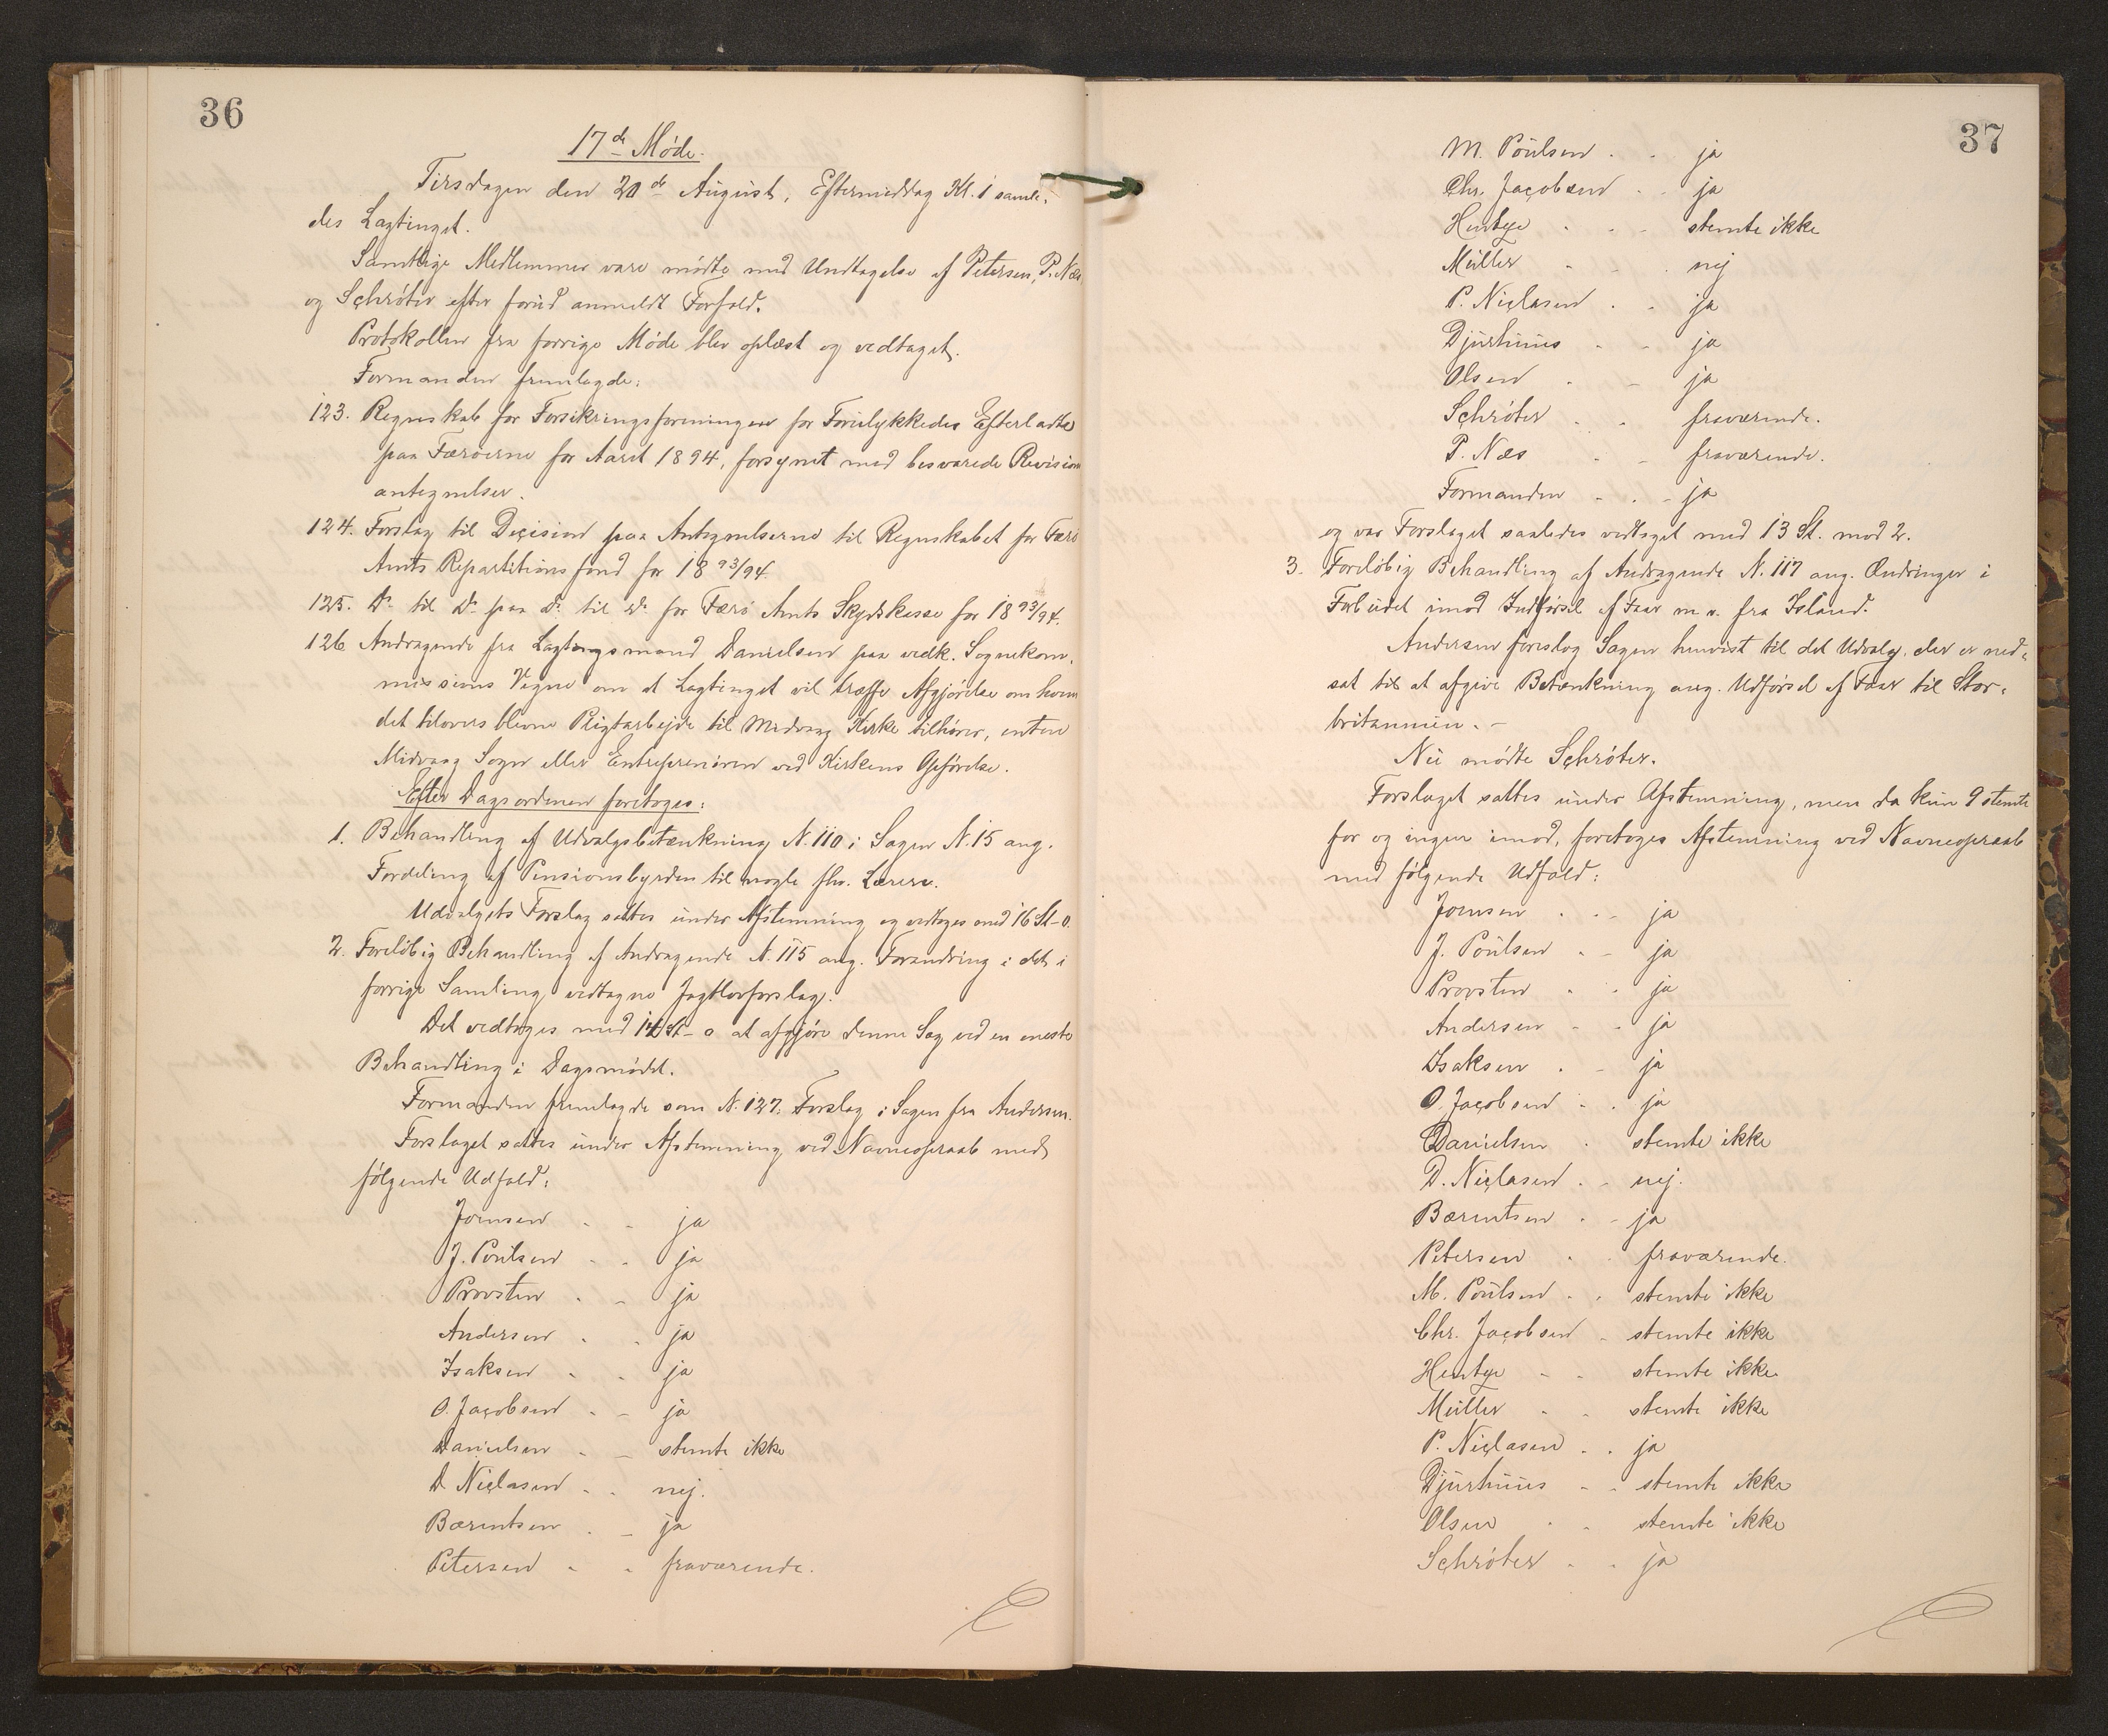 36
17de Møde.
Tirsdagen den 20de August, Eftermiddag Kl. 1 samle-
des Lagtinget.
Samtlige Medlemmer vare mødte med Undtagelse af Petersen, P. Næs
og Schrøter efter forud anmeldt Forfald.
Protokollen fra forrige Møde blev oplæst og vedtaget.
Formanden fremlagde:
123. Regnskab for Forsikringsforeningen for Forulykkedes Efterladte
paa Færøerne for Aaret 1894, forsynet med besvarede Revisions
antegnelser.
124. Forslag til Decision paa Antegnelserne til Regnskabet for Færø
Amts Repartitionsfond for 1893/94.
125. Do til Do paa do til Do for Færø Amts Skydskasse for 1893/94.
126. Andragende fra Lagtingsmand Danielsen paa vedk. Sognekom-
missions Vegne om at Lagtinget vil træffe Afgjørelse om hvem
det tilovers blevne Pligtarbejde til Midvaag Kirke tilhører, enten
Midvaag Sogn eller Entreprenøren ved Kirkens Opførelse.
Efter Dagsordenen foretoges:
1. Behandling af Udvalgsbetænkning N. 110 i Sagen N. 15 ang.
Fordeling af Pensionsbyrden til nogle fhv. Lærere.
Udvalgets Forslag sattes under Afstemning og vedtoges med 16 St-0.
2. Foreløbig Behandling af Andragende N. 115 ang. Forandring i det i
forrige Samling vedtagne Jagtlovforslag.
Det vedtoges med 14 St-0 at afgjøre denne Sag ved en eneste
Behandling i Dagsmødet.
Formanden fremlagde som N. 127. Forslag i Sagen fra Andersen.
Forslaget sattes under Afstemning ved Navneopraab med
følgende Udfald:
Joensen - - ja
J. Poulsen - - ja
Provsten - - ja
Andersen - - ja
Isaksen - - ja
O. Jacobsen - - ja
Danielsen - - stemte ikke
D. Niclasen - - nej.
Bærentsen - - ja
Petersen - - fraværende.
37
M. Poulsen - - ja
Chr. Jacobsen - - ja
Hentze - - - stemte ikke
Müller - - - nej
P. Niclasen - - ja
Djurhuus - - ja
Olsen - - ja
Schrøter - - fraværende.
P. Næs - - fraværende.
Formanden - - - ja
og var Forslaget saaledes vedtaget med 13 St. mod 2.
3. Foreløbig Behandling af Andragende N. 117 ang. Ændringer i
Forbudet imod Indførsel af Faar m.v. fra Island.
Andersen foreslog Sagen henvist til det Udvalg, der er ned-
sat til at afgive Betænkning ang. Udførsel af Faar til Stor-
britannien. -
Nu mødte Schrøter.
Forslaget sattes under Afstemning, men da kun 9 stemte
for og ingen imod, foretoges Afstemning ved Navneopraab
med følgende Udfald:
Joensen - - - ja
J. Poulsen - - ja
Provsten - - ja
Andersen - - ja
Isaksen - - ja
O. Jacobsen - - ja
Danielsen - stemte ikke
D. Niclasen - - nej.
Bærentsen - - ja
Petersen - - fraværende.
M. Poulsen - - stemte ikke
Chr. Jacobsen - stemte ikke
Hentze - - stemte ikke
Müller - - stemte ikke
P. Niclasen - - ja
Djurhuus - - stemte ikke
Olsen - - stemte ikke
Schrøter - - ja